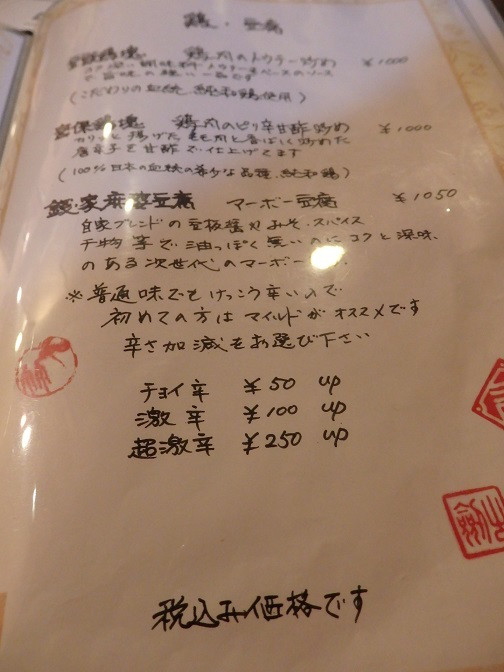 鶏・豆腐
鶏肉のトウチー炒め ¥1000
で旨味の強い一品です
(こだわりの血統、純和鶏使用)
宮保鶏塊 鶏肉のピリ辛甘酢炒め ¥1000
カリッと揚げたもも肉と香ばしく炒めた
唐辛子を甘酢で仕上げてます
(100%日本の血統の希少な品種、純和鶏)
麻婆豆腐 マーボー豆腐 ¥1050
自家ブレンドの豆板醤やみそ、スパイス
干物等で油っぽく無いのにコクと深味
のある次世代のマーボー
※普通味でもけっこう辛いので
初めての方はマイルドがオススメです
辛さ加減をお選び下さい
チョイ辛 ¥50 up
激辛 ¥100 up
超激辛 ¥250 up
税込み価格です